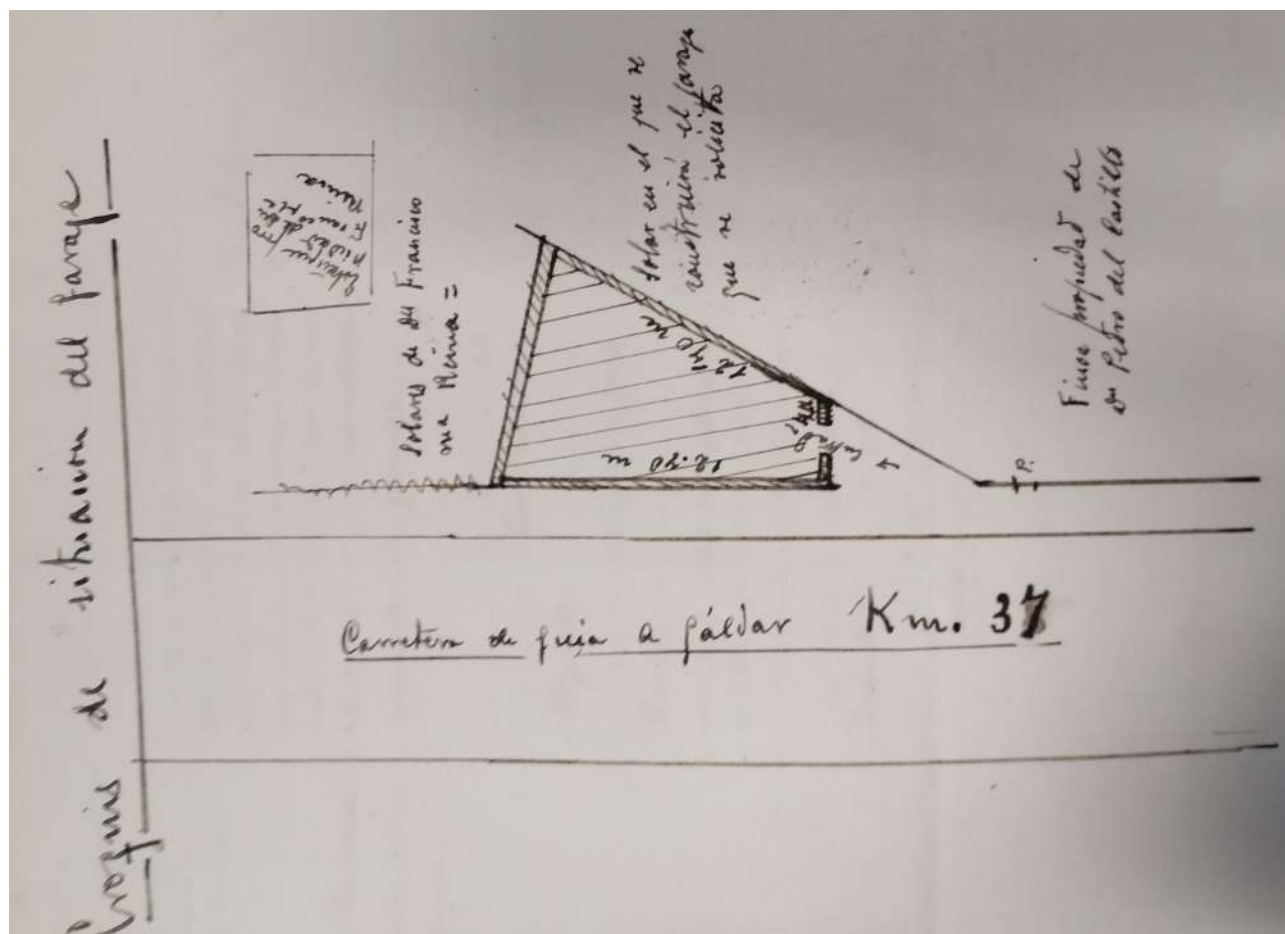 Croquis de situacion del garage
Estanque pro
piedad de Dn
Francisco
Reina
Solares de Dn Francisco
Reina =
Solar en el que se
construirá el garage
que se solicita
12.40 m
12.20 m
Entrada
Finca propiedad de
Dn Pedro del Castillo
P.
Carretera de guia a gáldar Km. 37